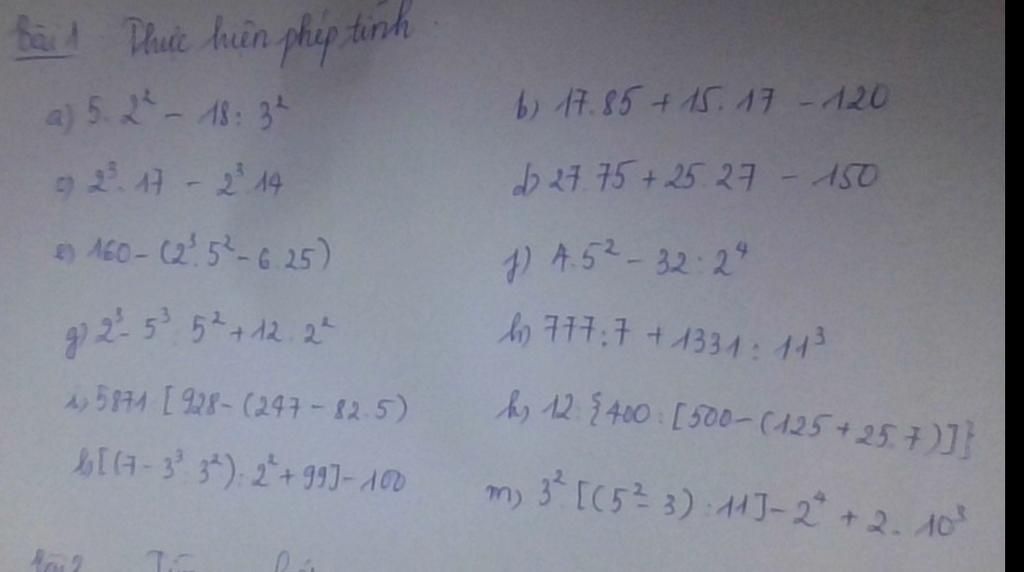 Bài 1 Thực hiện phép tính
a) 5.2² - 18 : 3² b) 17.85 + 15.17 - 120
c) 2³.17 - 2³.14 d) 27.75 + 25.27 - 150
e) 160 - (2³.5² - 6.25) f) 4.5² - 32 : 2⁴
g) 2³ - 5³ : 5² + 12.2² h) 777 : 7 + 1331 : 11³
i) 5871 : [928 - (247 - 82.5) k) 12 : {400 : [500 - (125 + 25.7)]}
l) [(7 - 3³ : 3²) : 2² + 99] - 100 m) 3² . [(5² - 3) : 11] - 2⁴ + 2.10³
Bài 2